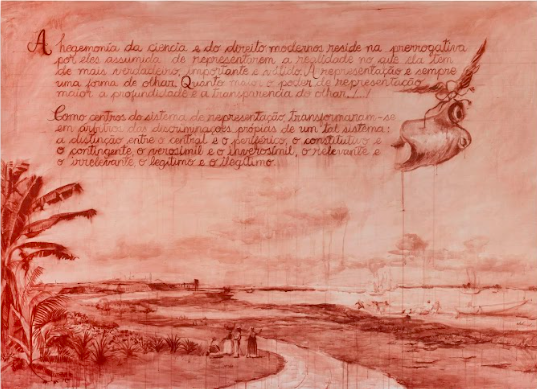 A hegemonia da ciência e do direito modernos reside na prerrogativa
por eles assumida de representarem a realidade no que ela tem
de mais verdadeiro, importante e sólido. A representação é sempre
uma forma de olhar. Quanto maior o poder de representação,
maior a profundidade e a transparência do olhar.
Como centros do sistema de representação, transformaram-se
em árbitros das discriminações próprias de um tal sistema:
a distinção entre o central e o periférico, o constitutivo e
o contingente, o verosímil e o inverosímil, o relevante e
o irrelevante, o legítimo e o ilegítimo.